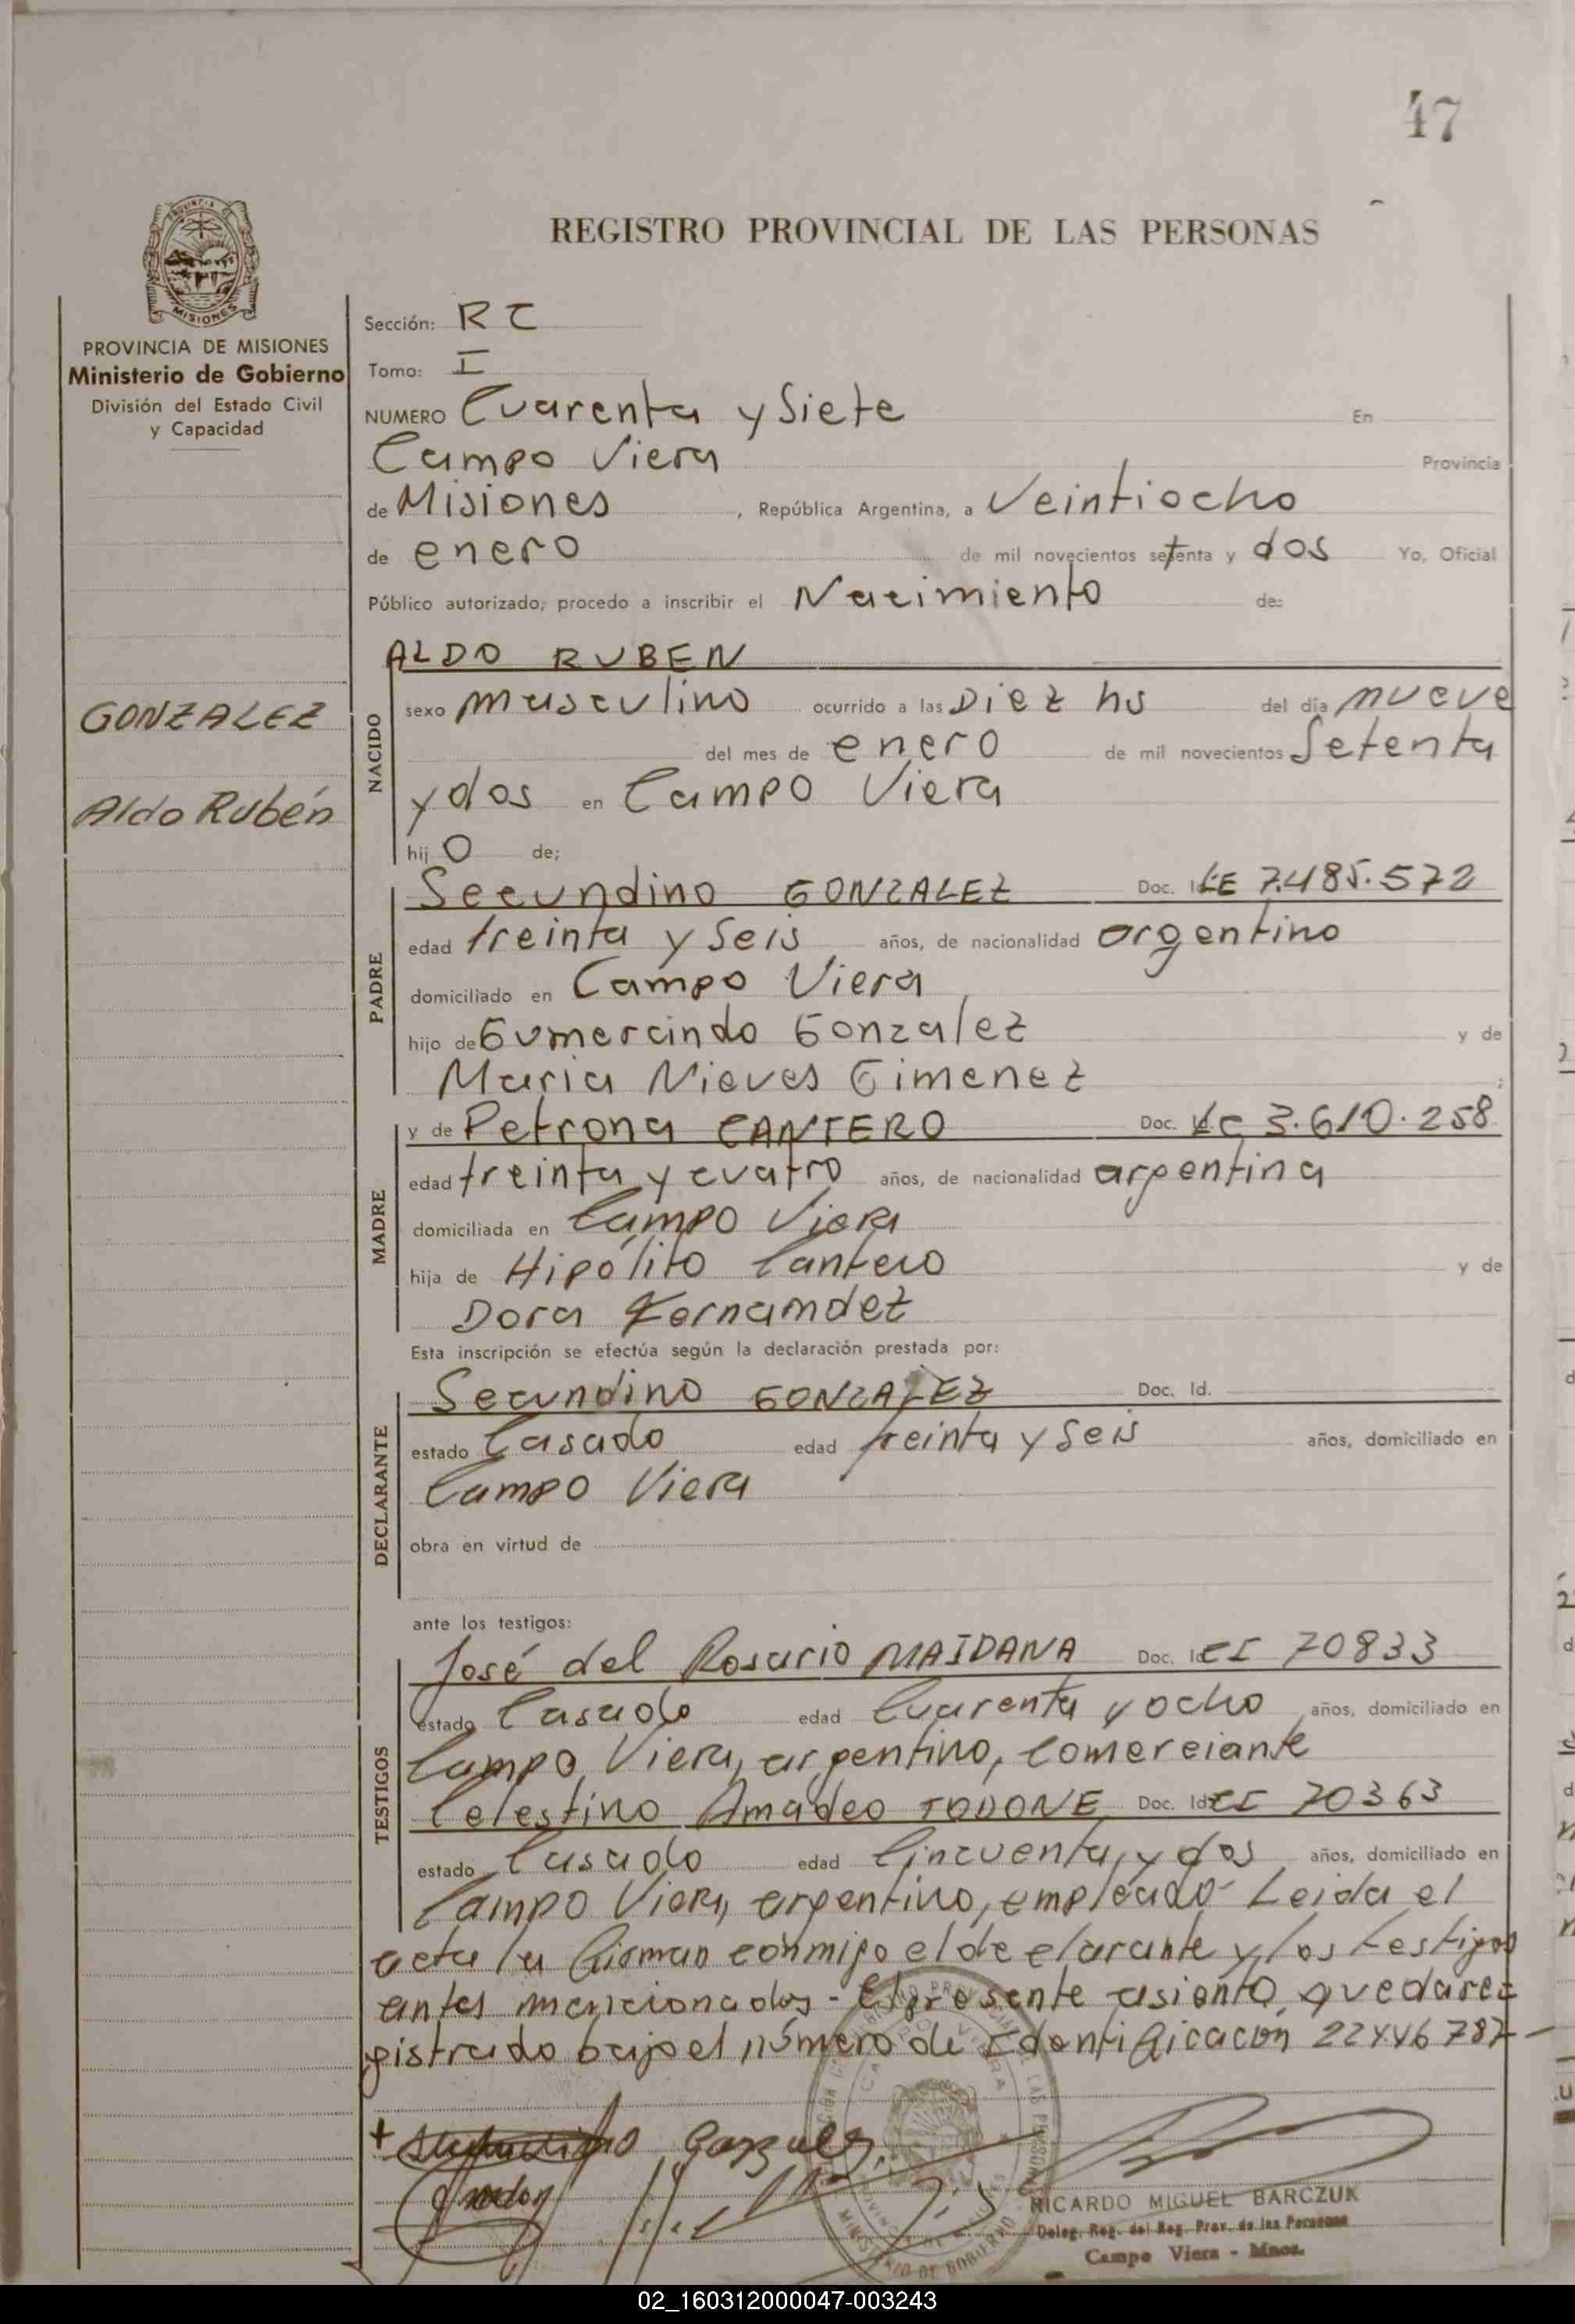 47
REGISTRO PROVINCIAL DE LAS PERSONAS
PROVINCIA DE MISIONES
Ministerio de Gobierno
División del Estado Civil
y Capacidad
GONZALEZ
Aldo Rubén
Sección: RC
Tomo: I
NUMERO Cuarenta y Siete En
Campo Viera Provincia
de Misiones, República Argentina, a Veintiocho
de enero de mil novecientos setenta y dos Yo, Oficial
Público autorizado, procedo a inscribir el Nacimiento de:
ALDO RUBEN
NACIDO
sexo masculino ocurrido a las Diez hs del día nueve
del mes de enero de mil novecientos Setenta
y dos en Campo Viera
hijo de;
PADRE
Secundino GONZALEZ Doc. Id. LE 7.485.572
edad treinta y Seis años, de nacionalidad argentino
domiciliado en Campo Viera
hijo de Gumercindo Gonzalez y de
Maria Nieves Gimenez;
MADRE
y de Petrona CANTERO Doc. LC 3.610.258
edad treinta y cuatro años, de nacionalidad argentina
domiciliada en Campo Viera
hija de Hipólito Cantero y de
Dora Fernamdez
Esta inscripción se efectúa según la declaración prestada por:
DECLARANTE
Secundino GONZALEZ Doc. Id.
estado Casado edad treinta y Seis años, domiciliado en
Campo Viera
obra en virtud de
ante los testigos:
TESTIGOS
José del Rosario MAIDANA Doc. Id. CI 70833
estado Casado edad Cuarenta y ocho años, domiciliado en
Campo Viera, argentino, Comerciante
Celestino Amadeo TODONE Doc. Id. CI 70363
estado Casado edad Cincuenta y dos años, domiciliado en
Campo Viera, argentino, empleado - Leida el
acta la firman conmigo el declarante y los testigos
antes mencionados - El presente asiento quedare=
gistrado bajo el número de Identificacion 22446787 -
Gonzalez
RICARDO MIGUEL BARCZUK
Deleg. Reg. del Reg. Prov. de las Personas
Campo Viera - Mnes.
02_160312000047-003243